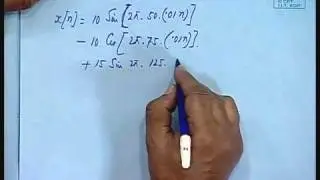 x[n] = 10 Sin [2π. 50. (.01n)]
- 10 Cos [2π. 75. (.01n)].
+ 15 Sin 2π. 125.
I.I.T. KGP